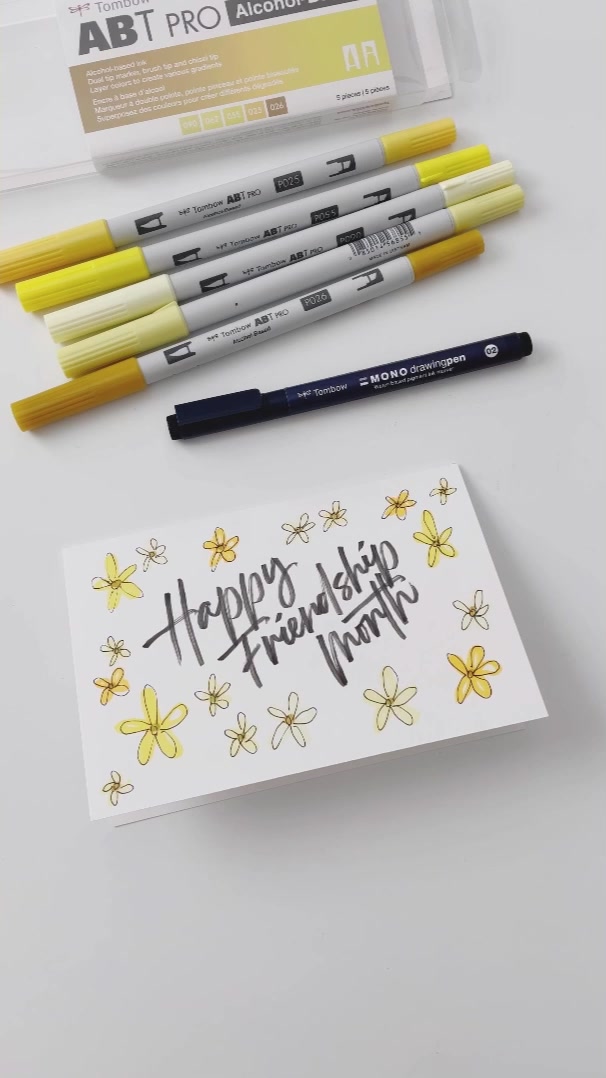 Tombow
ABT PRO Alcohol-B
Alcohol-based ink
Dual tip marker, brush tip and chisel tip
Layer colors to create various gradients
Encre à base d'alcool
Marqueur à double pointe, pointe pinceau et pointe biseautée
Superposez des couleurs pour créer différents dégradés
5 pieces / 5 pièces
025 026
Tombow ABT PRO P025
Alcohol-Based
Tombow ABT PRO P055
Tombow ABT PRO P090
Tombow ABT PRO P026
Alcohol-Based
Tombow MONO drawingpen 02
Water based pigment ink marker
Happy
Friendship
Month